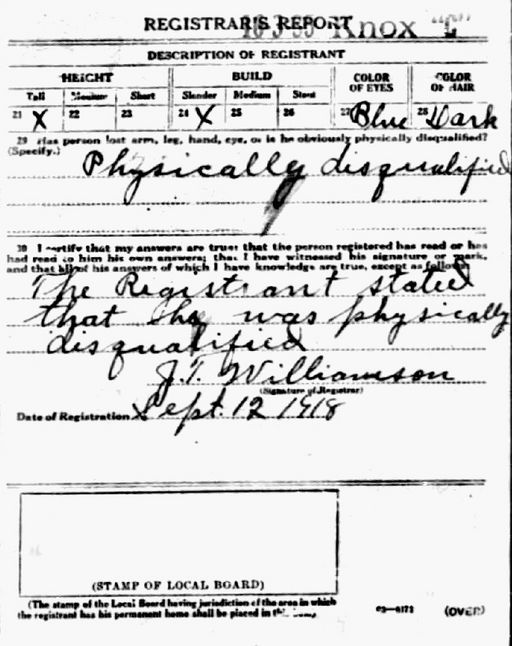 REGISTRAR'S REPORT
Knox "L"
DESCRIPTION OF REGISTRANT
HEIGHT BUILD COLOR OF EYES COLOR OF HAIR
Tall Medium Short Slender Medium Stout
21 X 22 23 24 X 25 26 27 Blue 28 Dark
29 Has person lost arm, leg, hand, eye, or is he obviously physically disqualified?
(Specify.)
Physically disqualified
30 I certify that my answers are true; that the person registered has read or has
had read to him his own answers; that I have witnessed his signature or mark,
and that all of his answers of which I have knowledge are true, except as follows:
The Registrant stated
that he was physically
disqualified
J.T. Williamson
(Signature of Registrar)
Date of Registration Sept. 12 1918
(STAMP OF LOCAL BOARD)
(The stamp of the Local Board having jurisdiction of the area in which
the registrant has his permanent home shall be placed in this
03—6171 (OVER)